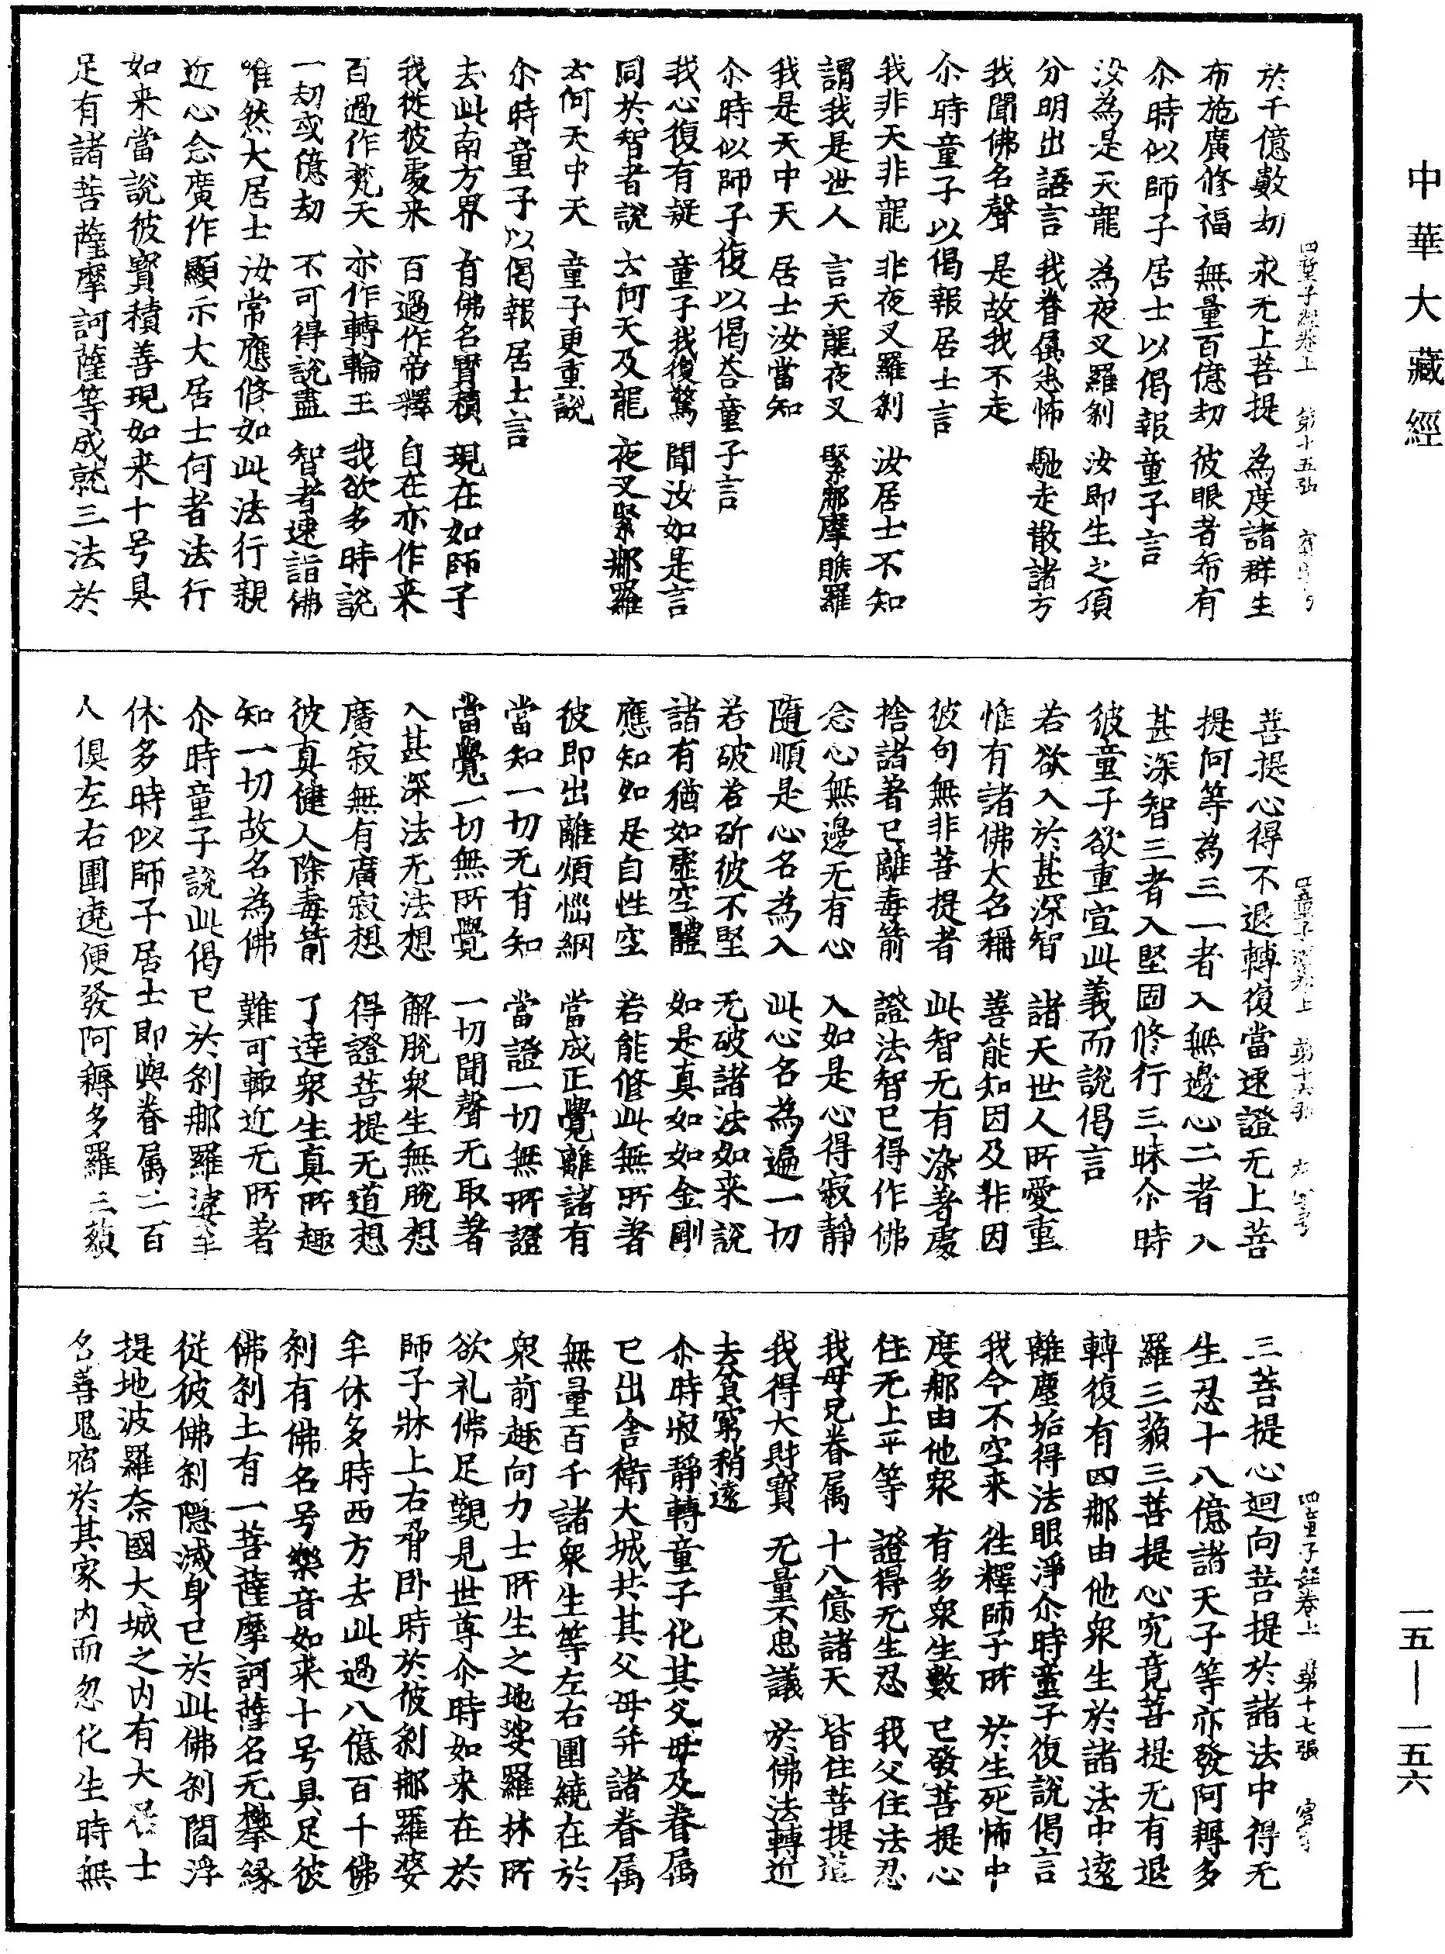 中華大藏經
於千億數劫　求无上菩提　為度諸群生
四童子經卷上　第十五張
布施廣修福　無量百億劫　彼眼者希有
尒時似師子居士以偈報童子言
没為是天龍　為夜叉羅刹　汝即生之頃
分明出語言　我眷屬悉怖　馳走散諸方
我聞佛名聲　是故我不走
尒時童子以偈報居士言
我非天非龍　非夜叉羅刹　汝居士不知
謂我是世人　言天龍夜叉　緊那摩睺羅
我是天中天　居士汝當知
尒時似師子復以偈荅童子言
我心復有疑　童子我復驚　聞汝如是言
同於智者說　云何天及龍　夜叉緊那羅
云何天中天　童子更重說
尒時童子以偈報居士言
去此南方界　有佛名寶積　現在如師子
我從彼處来　百過作帝釋　自在亦作来
百過作梵天　亦作轉輪王　我欲多時說
一劫或億劫　不可得說盡　智者速詣佛
唯然大居士汝常應修如此法行親
近心念廣作顯示大居士何者法行
如来當說彼寶積善現如来十号具
足有諸菩薩摩訶薩等成就三法於
菩提心得不退轉復當速證无上菩
四童子經卷上　第十六張
提何等為三一者入無邊心二者入
甚深智三者入堅固修行三昧尒時
彼童子欲重宣此義而說偈言
若欲入於甚深智　諸天世人所愛重
惟有諸佛大名稱　善能知因及非因
彼句無非菩提者　此智无有染著處
捨諸著已離毒箭　證法智已得作佛
念心無邊无有心　入如是心得寂靜
隨順是心名為入　此心名為遍一切
若破若斫彼不堅　无破諸法如来說
諸有猶如虛空體　如是真如如金剛
應知如是自性空　若能修此無所著
彼即出離煩惱網　當成正覺離諸有
當知一切无有知　當證一切無所證
當覺一切無所覺　一切聞聲无取著
入甚深法无法想　解脫衆生無脫想
廣寂無有廣寂想　得證菩提无道想
彼真健人除毒箭　了達衆生真所趣
知一切故名為佛　難可輙近无所著
尒時童子說此偈已於刹那羅婆牟
休多時似師子居士即與眷屬二百
人俱左右圍遶便發阿耨多羅三藐
三菩提心迴向菩提於諸法中得无
四童子經卷上　第十七張
生忍十八億諸天子等亦發阿耨多
羅三藐三菩提心究竟菩提无有退
轉復有四那由他衆生於諸法中遠
離塵垢得法眼淨尒時童子復說偈言
我今不空来　往釋師子所　於生死怖中
度那由他衆　有多衆生數　已發菩提心
住无上平等　證得无生忍　我父住法忍
我母兄眷属　十八億諸天　皆住菩提道
我得大財寶　无量不思議　於佛法轉近
去貧窮稍遠
尒時寂靜轉童子化其父母及眷属
已出舍衛大城共其父母并諸眷属
無量百千諸衆生等左右圍繞在於
衆前趣向力士所生之地娑羅林所
欲礼佛足觀見世尊尒時如来在於
師子牀上右脅卧時於彼刹那羅婆
牟休多時西方去此過八億百千佛
刹有佛名号樂音如来十号具足彼
佛刹土有一菩薩摩訶薩名无攀縁
從彼佛刹隱滅身已於此佛刹閻浮
提地波羅奈國大城之内有大居士
名善鬼宿於其家内而忽化生時無
一五—一五六